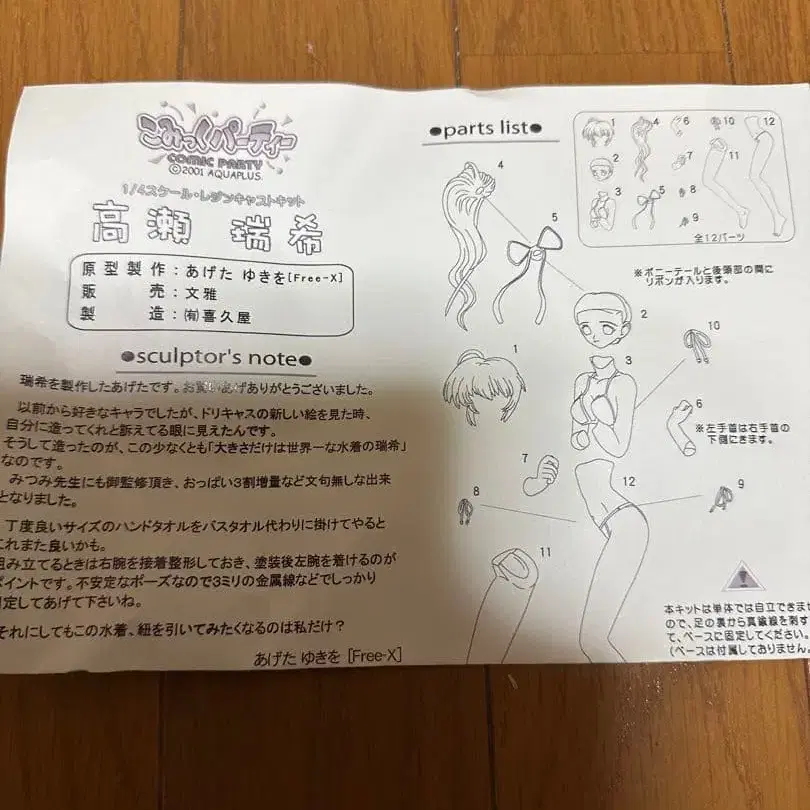 こみっくパーティー
COMIC PARTY
©2001 AQUAPLUS
1/4スケール・レジンキャストキット
高瀬 瑞希
原型製作：あげた ゆきを[Free-X]
販 売：文雅
製 造：㈲喜久屋
●sculptor's note●
瑞希を製作したあげたです。お買いあげありがとうございました。
以前から好きなキャラでしたが、ドリキャスの新しい絵を見た時、
自分に造ってくれと訴えてる眼に見えたんです。
そうして造ったのが、この少なくとも「大きさだけは世界一な水着の瑞希」
なのです。
みつみ先生にも御監修頂き、おっぱい3割増量など文句無しな出来
となりました。
丁度良いサイズのハンドタオルをバスタオル代わりに掛けてやると
これまた良いかも。
組み立てるときは右腕を接着整形しておき、塗装後左腕を着けるのが
ポイントです。不安定なポーズなので3ミリの金属線などでしっかり
固定してあげて下さいね。
それにしてもこの水着、紐を引いてみたくなるのは私だけ？
あげた ゆきを [Free-X]
●parts list●
1
2
3
4
5
6
7
8
9
10
11
12
全12パーツ
※ポニーテールと後頭部の間に
リボンが入ります。
4
5
2
10
1
3
6
※左手首は右手首の
下側にきます。
7
12
8
9
11
本キットは単体では自立できませ
ので、足の裏から真鍮線を刺す
て、ベースに固定してください。
(ベースは付属しておりません。